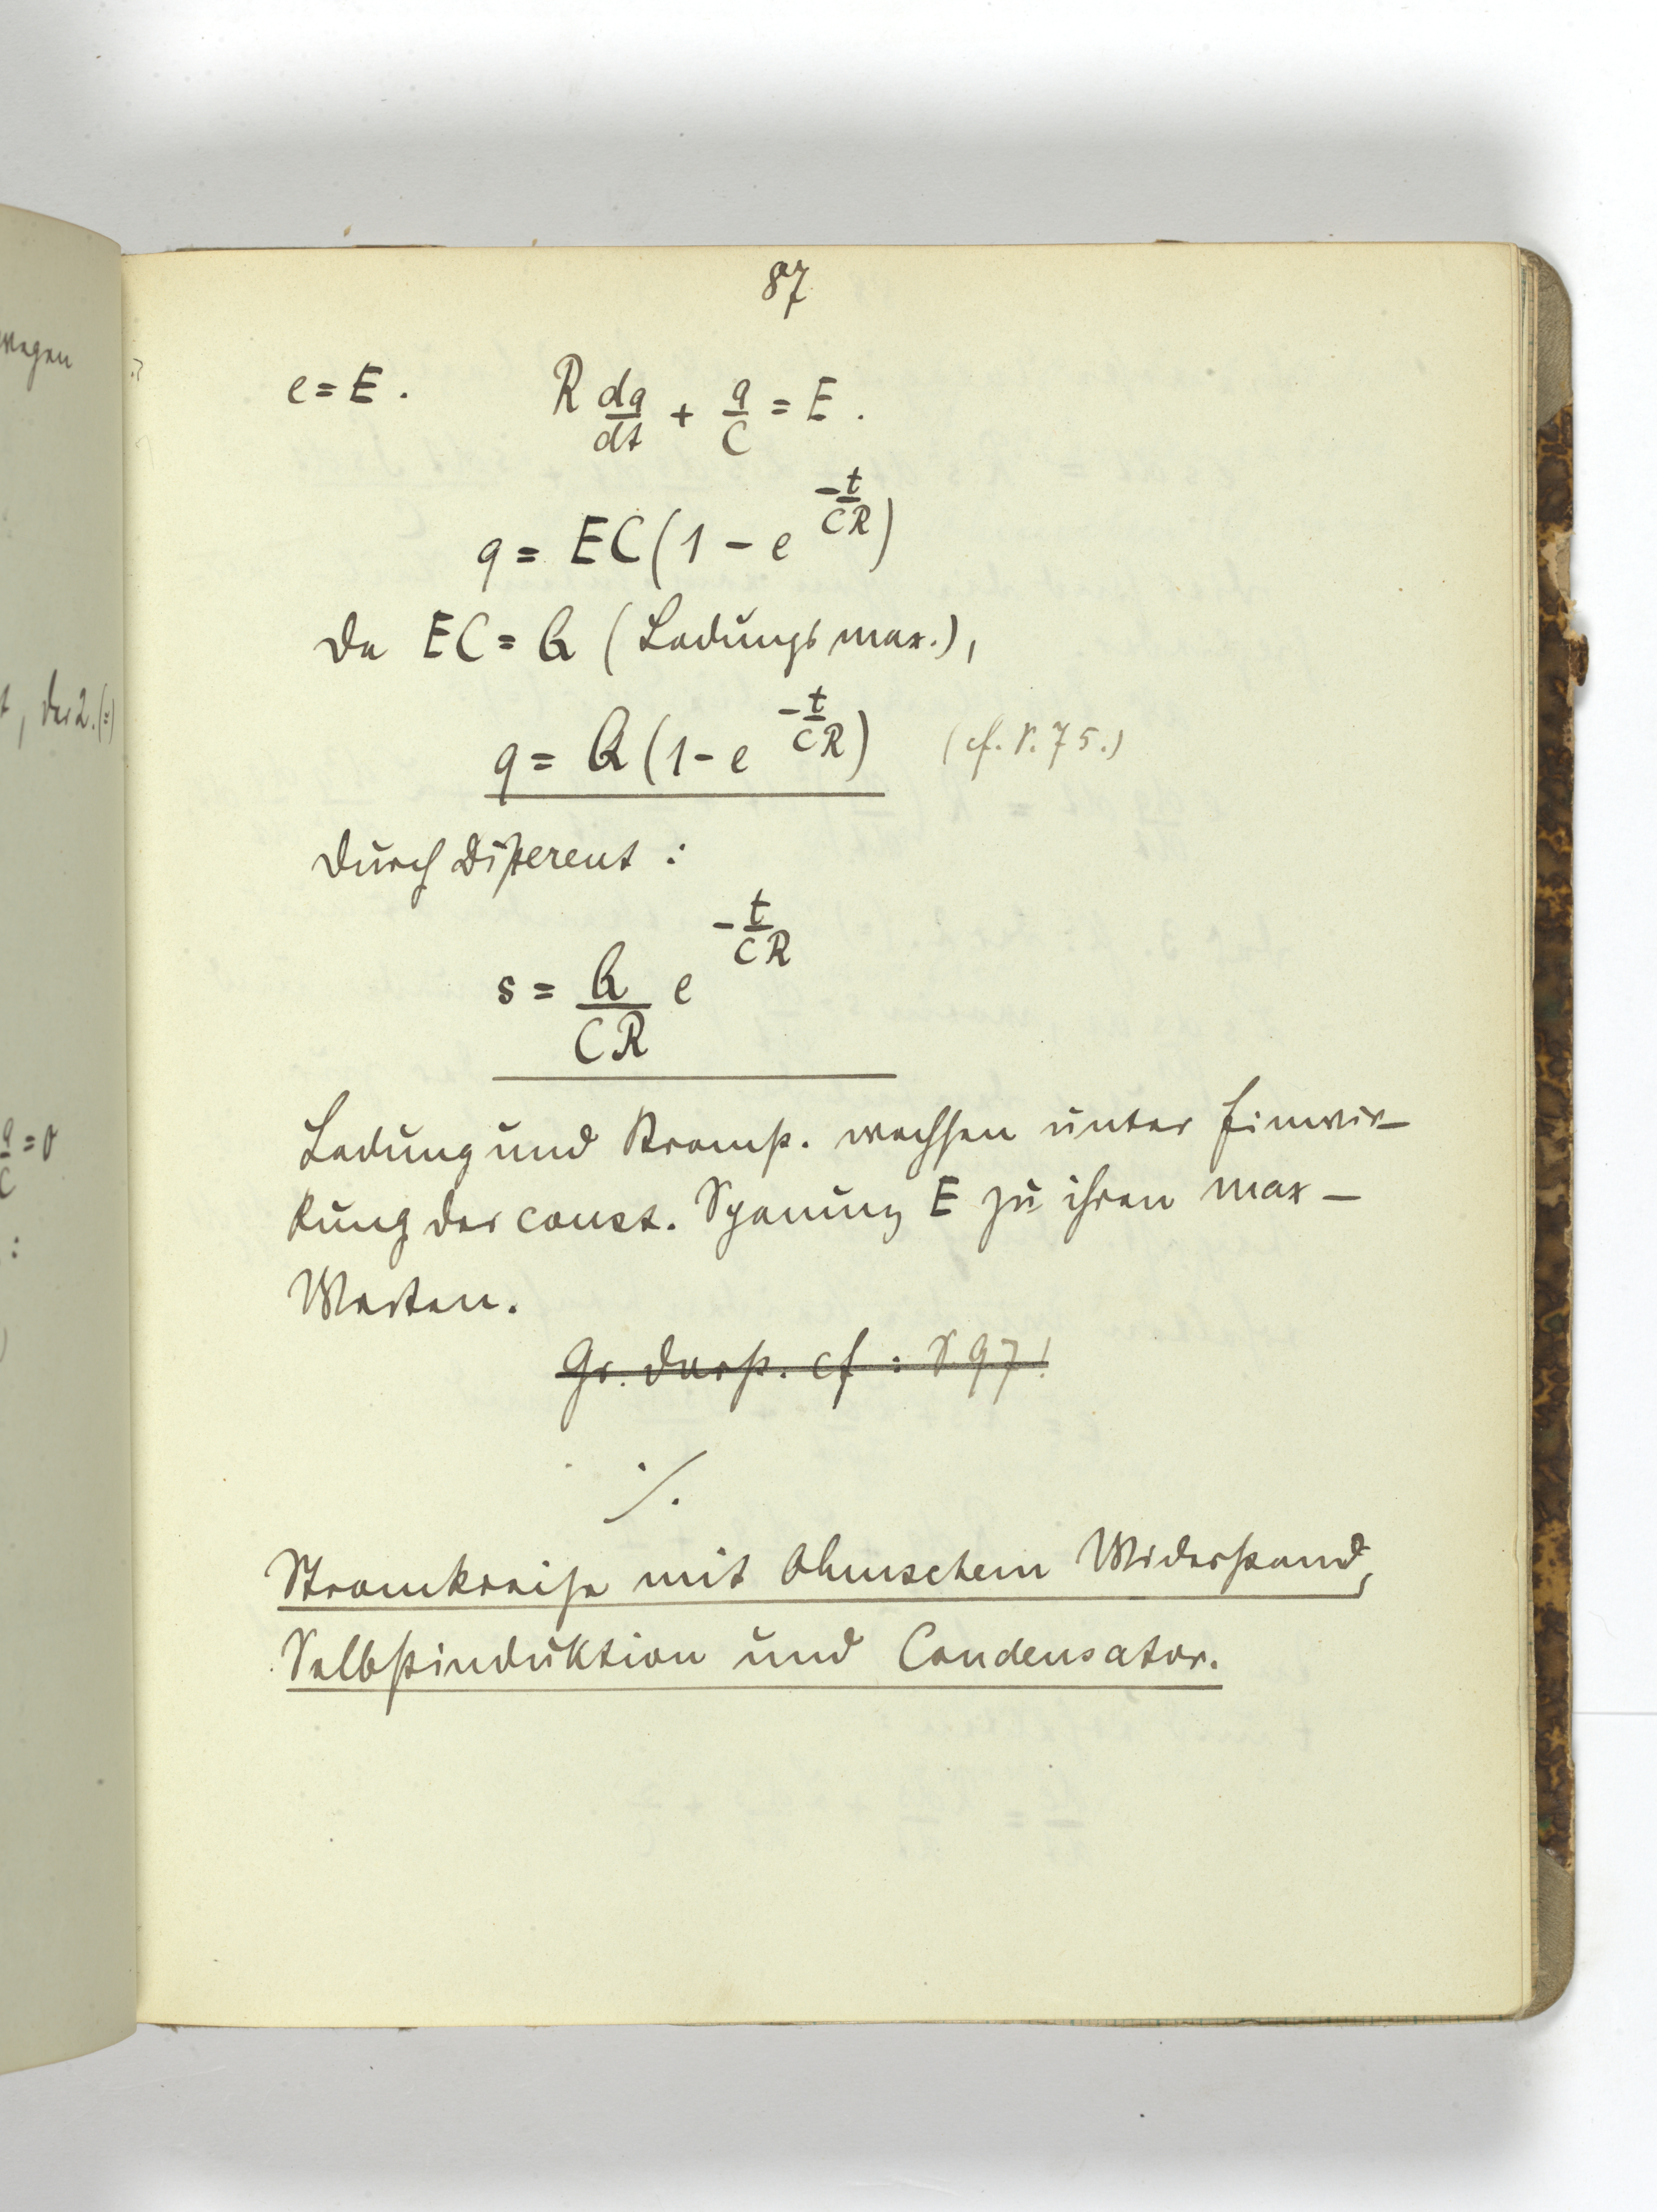 wegen
t, der 2. (:)
q/C = 0
:
87
e = E. R dq/dt + q/C = E.
q = EC (1 - e^(-t/CR))
Da EC = Q (Ladungsmax.),
q = Q (1 - e^(-t/CR)) (cf. S. 75.)
Durch Different :
s = Q/CR e^(-t/CR)
Ladung und Stromst. wachsen unter Einwir-
kung der const. Spanung E zu ihren max-
Werten.
Gr. Darst. cf : S 97!
./.
Stromkreise mit Ohmschem Widerstand,
Selbstinduktion und Condensator.